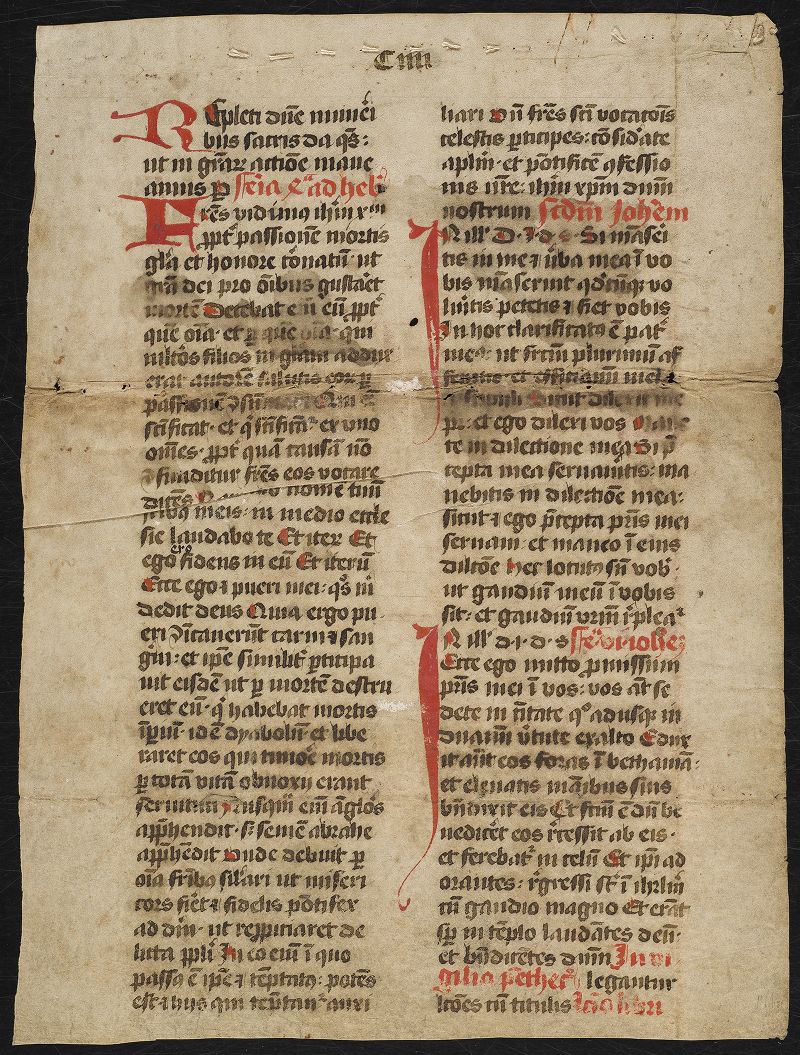 Ciiii
REpleti dn̄e muneri
bus sacris da qs̄:
ut in grāꝝ actiōe mane
amus p̱ fer̄ia xͣ ad hebͬ
FRēs vidimus ihm̄ xp̄m
ꝓpt̕ passionē mortis
glīa et honore coronatū ut
grā dei pro oībus gustaret
mortē Decebat em̄ eū ꝓpt̕
quē oīa· et ꝑ quē oīa· qui
multos filios in glīam addux
erat autorē salutis eoꝝ ꝑ
passionē ꝯsūmari Qui em̄
scīficat· et q̕ scīficāt̕ ex uno
om̄es· ꝓpt̕ quā causā nō
ꝯfunditur frēs eos vocare
dicēs nomē tuū
fribꝰ meis· in medio eccle
sie laudabo te Et iteꝝ Et
ego ero fidens in eū Et iterū
Ecce ego ⁊ pueri mei· qͦs m̕
dedit deus Quia ergo pu
eri ꝯīcauerūt carni ⁊ san
gui: et ip̄e similit̕ ꝑticipa
uit eisdē ut ꝑ mortē destru
eret eū· q̕ habebat mortis
īpiū· id ē dyabolū· et libe
raret eos qui timoē mortis
ꝑ totā vitā obnoxii erant
seruituti Nusqm̄ em̄ āgl̕os
app̄hendit· s̕ semē abrahe
app̄hēdit Unde debuit ꝑ
oīa fribꝰ sil̕ari ut miseri
cors fiēt ⁊ fidelis pōtifex
ad dm̄· ut repp̄iciaret de
licta ppl̕i In eo em̄ ī quo
passꝰ ē ip̄e ⁊ tēptatꝰ· potēs
est ⁊ hiis qui tēptan̕ auxi
liari Un̄ frēs scī̄ vocatōīs
celestis ꝑticipes: cōsid̕ate
aplm̄· et pōtificē ꝯfessio
nis nr̄e: ihm̄ xp̄m dnm̄
nostrum Scdm̄ Johēm
IN ill̕ D· J· d· s· Si māseri
tis in me ⁊ ūba mea ī vo
bis māserint qd̕cūqꝫ vo
lu̕itis petetis ⁊ fiet vobis
In hoc clarificatꝰ ē pat̕
meꝰ· ut fructū plurimum af
feratis· et efficiamī mei
discipuli Sicut dilexit me
pr̄: et ego dilexi vos Mane
te in dilectione mea Si p̄
cepta mea seruauitis: ma
nebitis in dilectiōe mea:
sicut ⁊ ego p̄cepta pr̄is mei
seruaui· et maneo ī eius
dilc̄ōe Hec locutꝰ sū vob̕
ut gaudiū meū ī vobis
sit: et gaudiū vr̄m ī pleat̕
IN ill̕ d· i· d· s fer̄ vi iohēs
Ecce ego mitto promissum
pr̄is mei ī vos: vos āt se
dete in cītate qͦ adusqꝫ in
duamī v̕tute ex alto Edux
it aūt eos foras ī bethaniā:
et eleuatis māibus suis
bn̄dixit eis Et fcm̄ ē dū be
nedicēt eos r̕cessit ab eis·
et ferebat̕ in celū Et ip̄i ad
orantes: r̕gressi sr̄t ī ihrlm̄
cū gaudio magno Et erāt
sp̄ in tēplo laudātes deū·
et bn̄dicētes dnm̄ In vi
gilia penthecͦ legantur
lcōes cū titulis Lcō libri